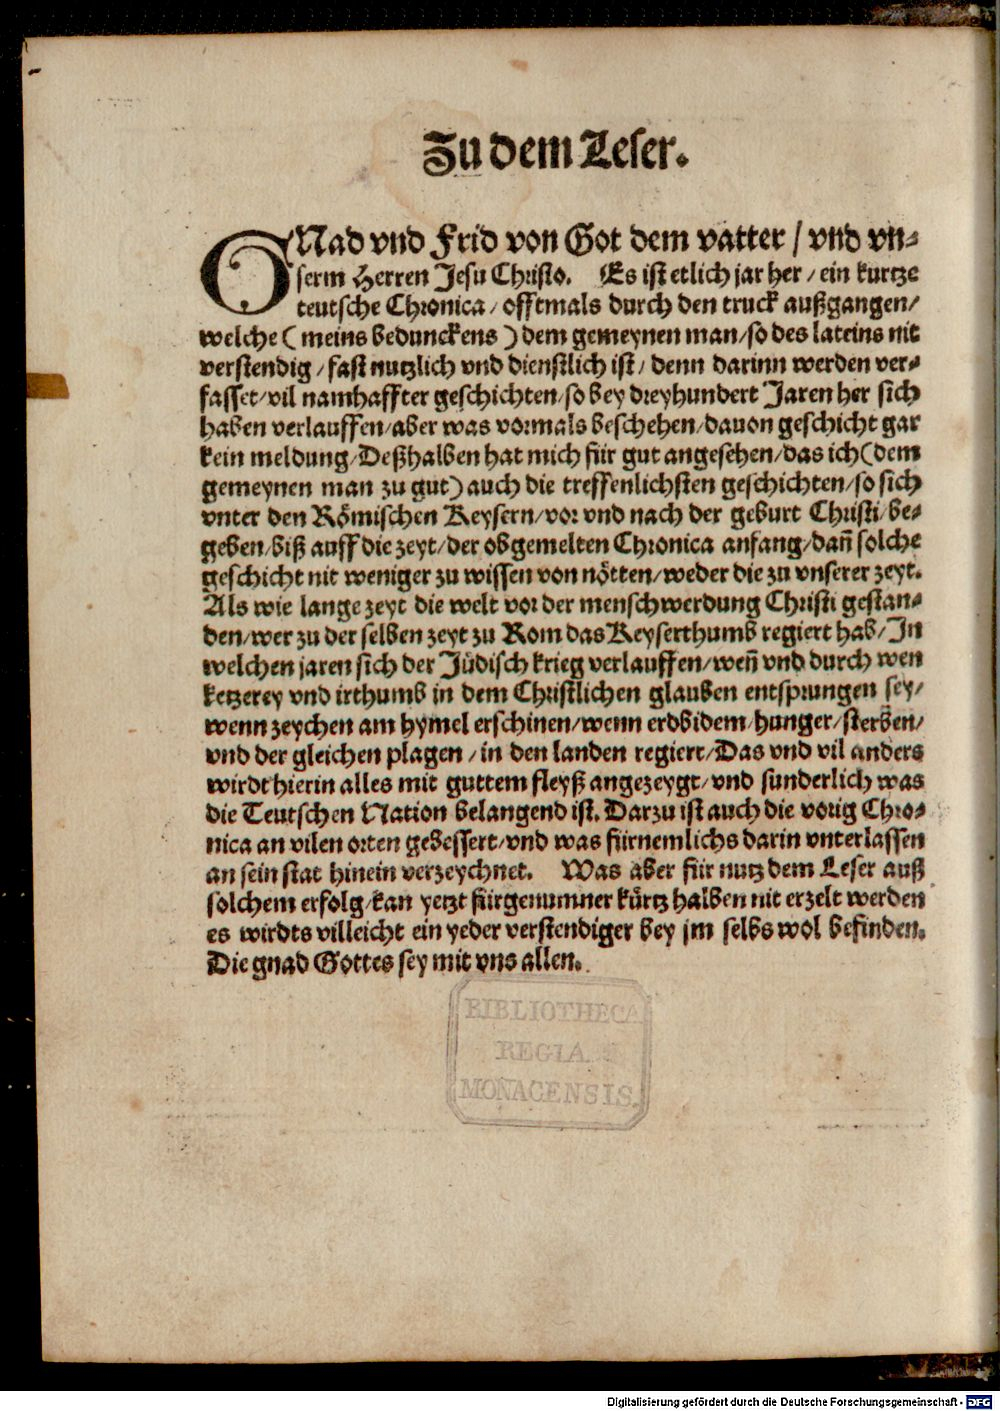 Zu dem Leser.
GNad vnd Frid von Got dem vatter / vnd vn⸗
serm Herren Jesu Christo. Es ist etlich jar her / ein kurtze
teutsche Chronica / offtmals durch den truck außgangen /
welche ( meins bedunckens ) dem gemeynen man / so des lateins nit
verstendig / fast nutzlich vnd dienstlich ist / denn darinn werden ver⸗
fasset / vil namhaffter geschichten / so bey dreyhundert Jaren her sich
haben verlauffen / aber was vormals beschehen / dauon geschicht gar
kein meldung / Deßhalben hat mich für gut angesehen / das ich ( dem
gemeynen man zu gut ) auch die treffenlichsten geschichten / so sich
vnter den Römischen Keysern / vor vnd nach der geburt Christi / be⸗
geben / biß auff die zeyt / der obgemelten Chronica anfang / dañ solche
geschicht nit weniger zu wissen von nötten / weder die zu vnserer zeyt.
Als wie lange zeyt die welt vor der menschwerdung Christi gestan⸗
den / wer zu der selben zeyt zu Rom das Keyserthumb regiert hab / In
welchen jaren sich der Jüdisch krieg verlauffen / weñ vnd durch wen
ketzerey vnd irthumb in dem Christlichen glauben entsprungen sey /
wenn zeychen am hymel erschinen / wenn erdbidem / hunger / sterben /
vnd der gleichen plagen / in den landen regiert / Das vnd vil anders
wirdt hierin alles mit guttem fleyß angezeygt / vnd sunderlich was
die Teutschen Nation belangend ist. Darzu ist auch die vorig Chro⸗
nica an vilen orten gebessert / vnd was fürnemlichs darin vnterlassen
an sein stat hinein verzeychnet. Was aber für nutz dem Leser auß
solchem erfolg / kan yetzt fürgenumner kürtz halben nit erzelt werden
es wirdts villeicht ein yeder verstendiger bey jm selbs wol befinden.
Die gnad Gottes sey mit vns allen.
BIBLIOTHECA
REGIA
MONACENSIS.
Digitalisierung gefördert durch die Deutsche Forschungsgemeinschaft - DFG